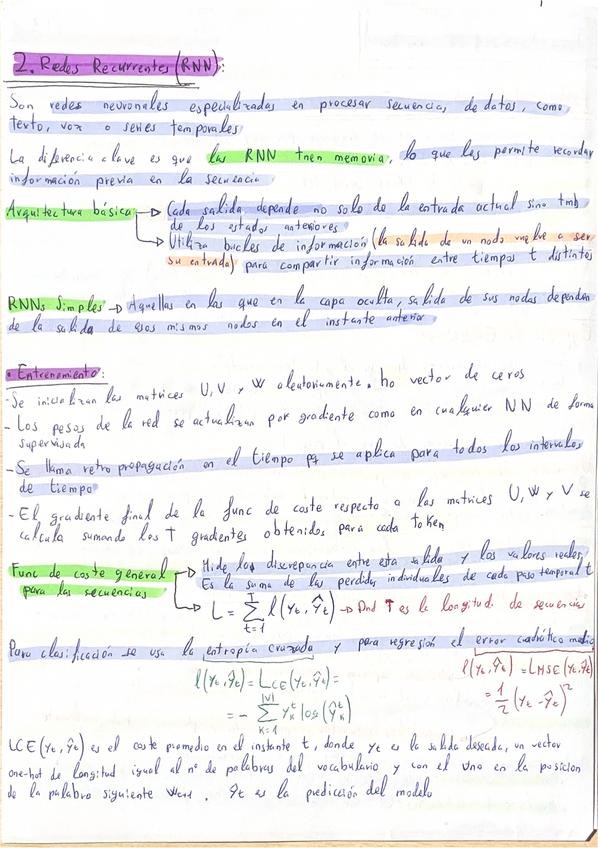 2. Redes Recurrentes (RNN):
Son redes neuronales especializadas en procesar secuencias de datos, como
texto, voz o series temporales
La diferencia clave es que las RNN tnen memoria, lo que les permite recordar
información previa en la secuencia
Arquitectura básica → Cada salida depende no solo de la entrada actual sino tmb
de los estados anteriores
→ Utiliza bucles de información (la salida de un nodo vuelve a ser
su entrada) para compartir información entre tiempos t distintos
RNNs Simples → Aquellas en las que en la capa oculta, salida de sus nodos dependen
de la salida de esos mismos nodos en el instante anterior
• Entrenamiento:
- Se inicializan las matrices U, V y W aleatoriamente. h0 vector de ceros
- Los pesos de la red se actualizan por gradiente como en cualquier NN de forma
supervisada
- Se llama retropropagación en el tiempo pq se aplica para todos los intervalos
de tiempo
- El gradiente final de la func de coste respecto a las matrices U, W y V se
calcula sumando los T gradientes obtenidos para cada token
Func de coste general → Mide la discrepancia entre esta salida y los valores reales,
para las secuencias Es la suma de las perdidas individuales de cada paso temporal t
→ L = Σ_{t=1}^{T} l(yt, ŷt) → Dnd T es la longitud de secuencias
Para clasificación se usa la entropía cruzada y para regresión el error cuadrático medio
l(yt, ŷt) = LCE(yt, ŷt) = l(yt, ŷt) = LMSE(yt, ŷt)
= - Σ_{k=1}^{|V|} y_k^t log(ŷ_k^t) = 1/2 (yt - ŷt)²
LCE(yt, ŷt) es el coste promedio en el instante t, donde yt es la salida deseada, un vector
one-hot de longitud igual al nº de palabras del vocabulario y con el uno en la posición
de la palabra siguiente wt+1. ŷt es la predicción del modelo